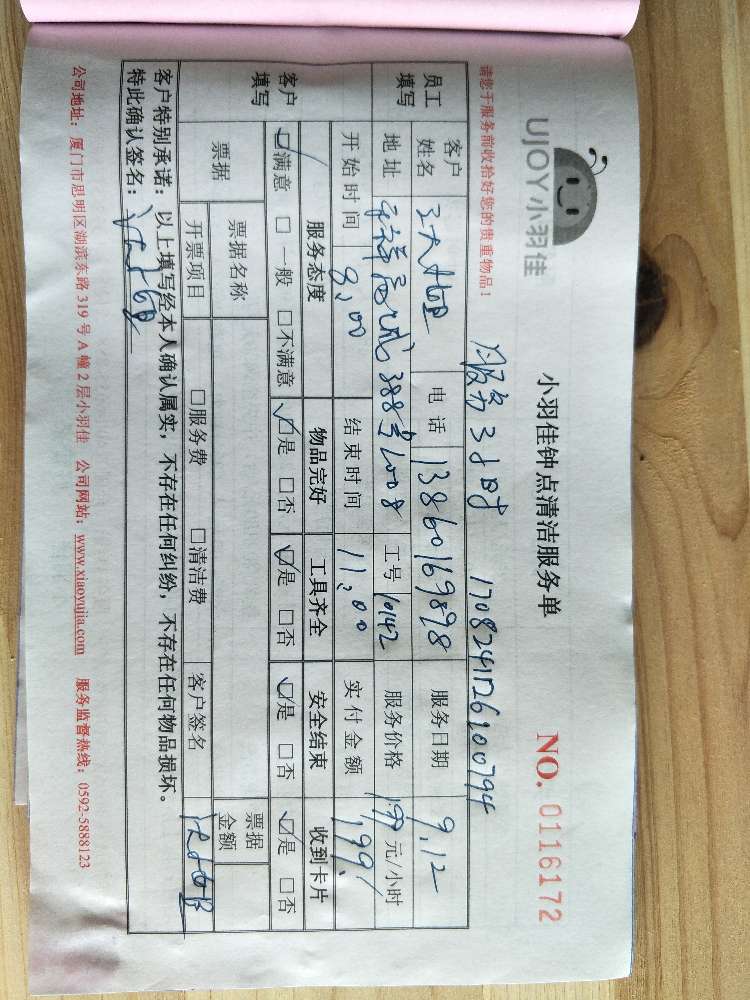 UJOY小羽佳
小羽佳钟点清洁服务单
NO. 0116172
请您于服务前收拾好您的贵重物品！
服务3小时
员工填写
客户姓名
电话 13860169898
服务日期 9.12
地址 388号1008
工号 10142
服务价格 199 元/小时
开始时间 8:00
结束时间 11:00
实付金额 199.
客户填写
服务态度 物品完好 工具齐全 安全结束 收到卡片
☑满意 □一般 □不满意 ☑是 □否 ☑是 □否 ☑是 □否 ☑是 □否
票据
票据名称
票据金额
开票项目 □服务费 □清洁费 客户签名
客户特别承诺：以上填写经本人确认属实，不存在任何纠纷，不存在任何物品损坏。
特此确认签名：
公司地址：厦门市思明区湖滨东路 319 号 A 幢 2 层小羽佳 公司网站：www.xiaoyujia.com 服务监督热线：0592-5888123